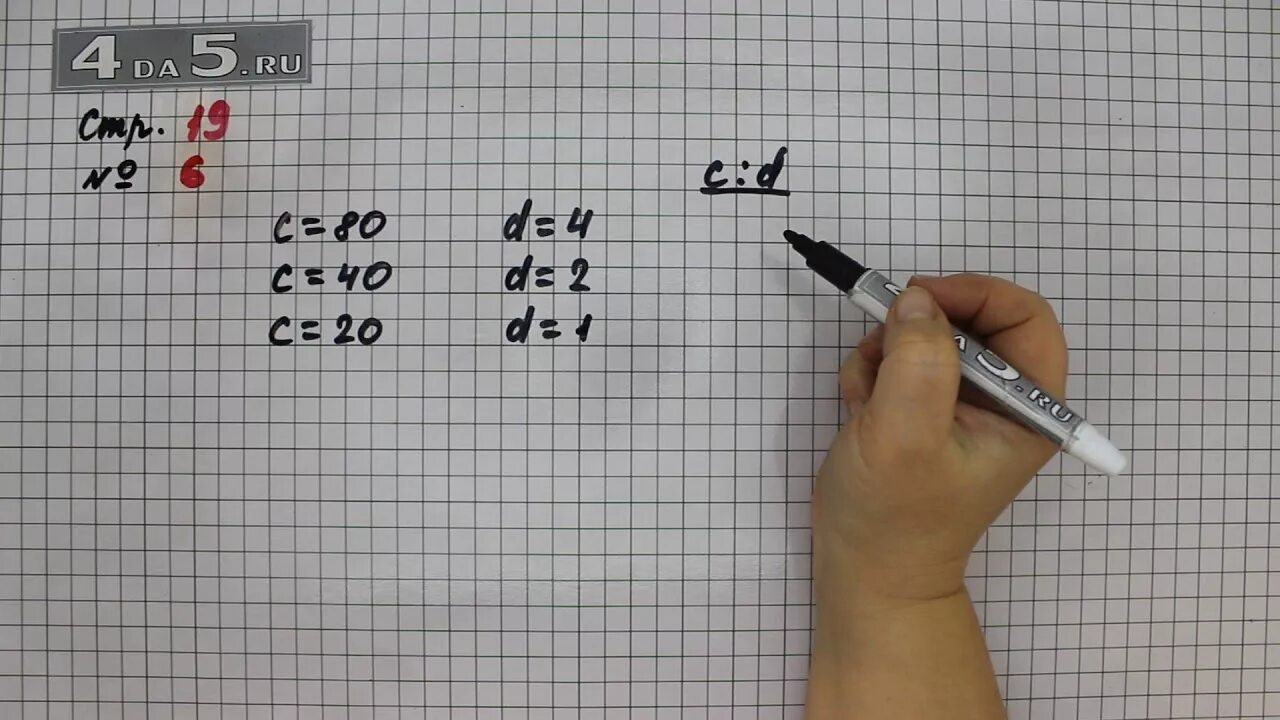 4DA5.RU
Стр. 19
№ 6
c:d
c=80 d=4
c=40 d=2
c=20 d=1
A5.RU